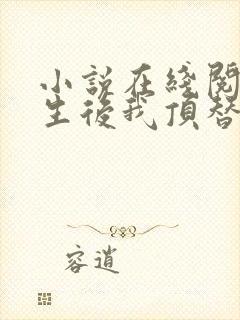 小說在綫閱
生後我頂替
容逍